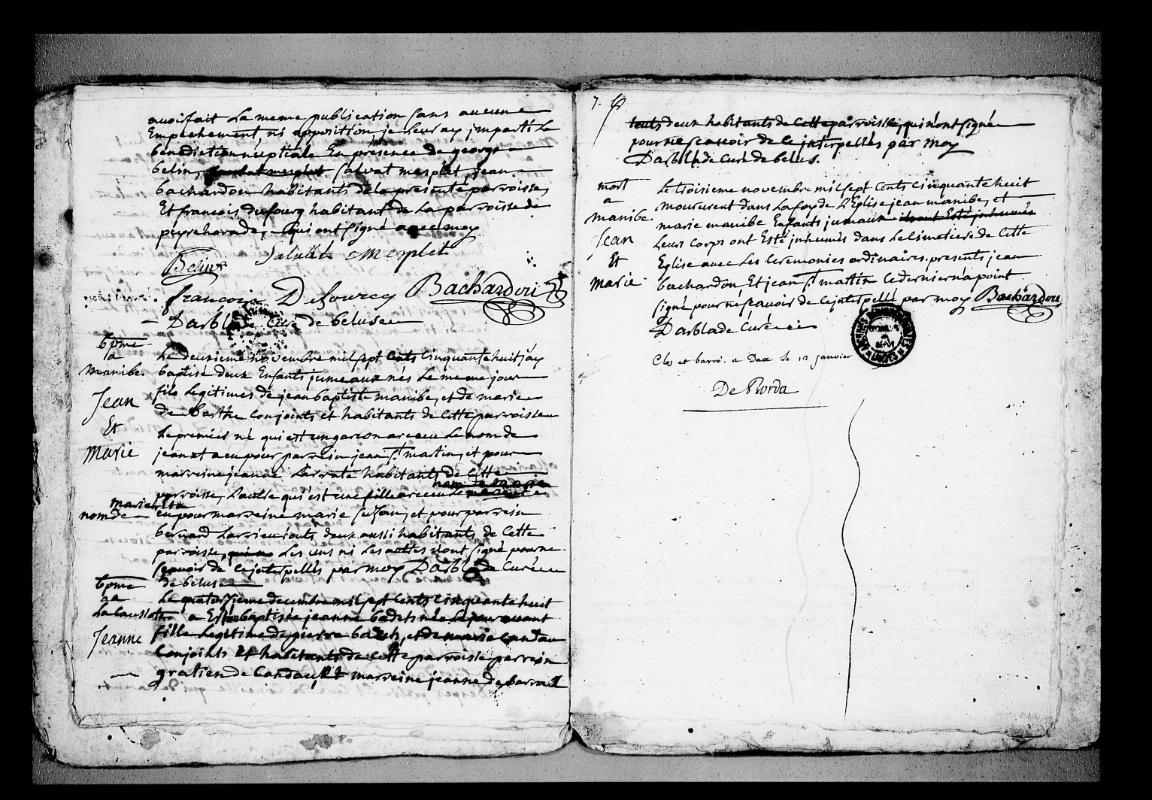 avoit fait la meme publication sans aucune
Empechement ni opposition, je leur ay imparti la
benediction nuptiale En presence de george
belins, salvat mesplet, jean
bachardou habitants de la presente parroisse,
Et francois dufourq habitant de la parroisse de
peyrehorade, qui ont signé avec moy
Belins Salvat Mesplet
francois Dufourcq Bachardou
Darblade Curé de beluse
bpme
a
manibe
Jean
Et
Marie
Le deuxieme novembre mil sept Cents Cinquante huit j'ay
baptisé deux Enfants jumeaux nés Le meme jour
fils legitimes de jean baptiste manibe, et de marie
de Barthe Conjoints et habitants de Cette parroisse
Le premier né qui est un garcon a receu Le nom de
jean et a eu pour parrein jean St martin, et pour
marreine jeanne habitants de Cette
nom de marie
parroisse, L'autre qui est une fille a receu le
nom de marie et a
eu pour marreine marie et pour parrein
bernard touts deux aussi habitants de Cette
parroisse, Les uns ni Les autres n'ont signé pour ne
sçavoir de Ce interpellés par moy Darblade Curé
de beluse
bpme
a
Jeanne
Le quatorsieme decembre mil sept Cents Cinquante huit
a Esté baptisée jeanne
fille Legitime de pierre et de marie Candau
Conjoints et habitants de Cette parroisse parrein
gratien de Candau, Et marreine jeanne de barrail
7.
touts deux habitants de Cette parroisse, qui n'ont signé
pour ne sçavoir de Ce interpellés par moy
Darblade Curé de belus.
mort
a
manibe
Jean
Et
marie
Le troisieme novembre mil sept Cents Cinquante huit
moururent dans La foy de L'Eglise jean manibe, et
marie manibe Enfants jumaux
Leurs Corps ont Esté inhumés dans Le Cimetiere de Cette
Eglise avec Les Ceremonies ordinaires, presents jean
bachardou, Et jean St martin Ce dernier n'a point
signé pour ne sçavoir de Ce interpellé par moy Bachardou
Darblade Curé
Clos et barré. a Dax le 12 janvier
De Borda